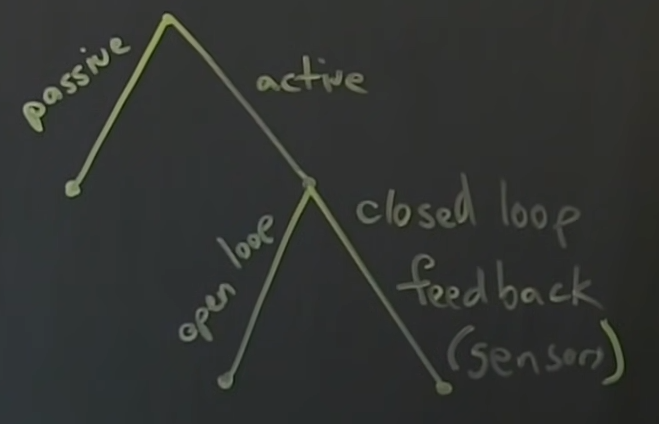 passive
active
open loop
closed loop
feedback
(sensors)